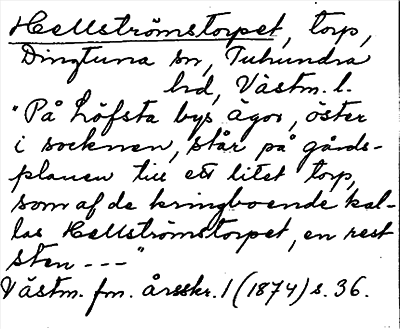 Hellströmstorpet, torp,
Dingtuna sn, Tuhundra
hd, Västm. l.
"På Höfsta bys ägor, öster
i socknen, står på gårds-
planen till ett litet torp,
som af de kringboende kal-
las Hellströmstorpet, en rest
sten ---"
Västm. fm. årsskr. 1 (1874) s. 36.